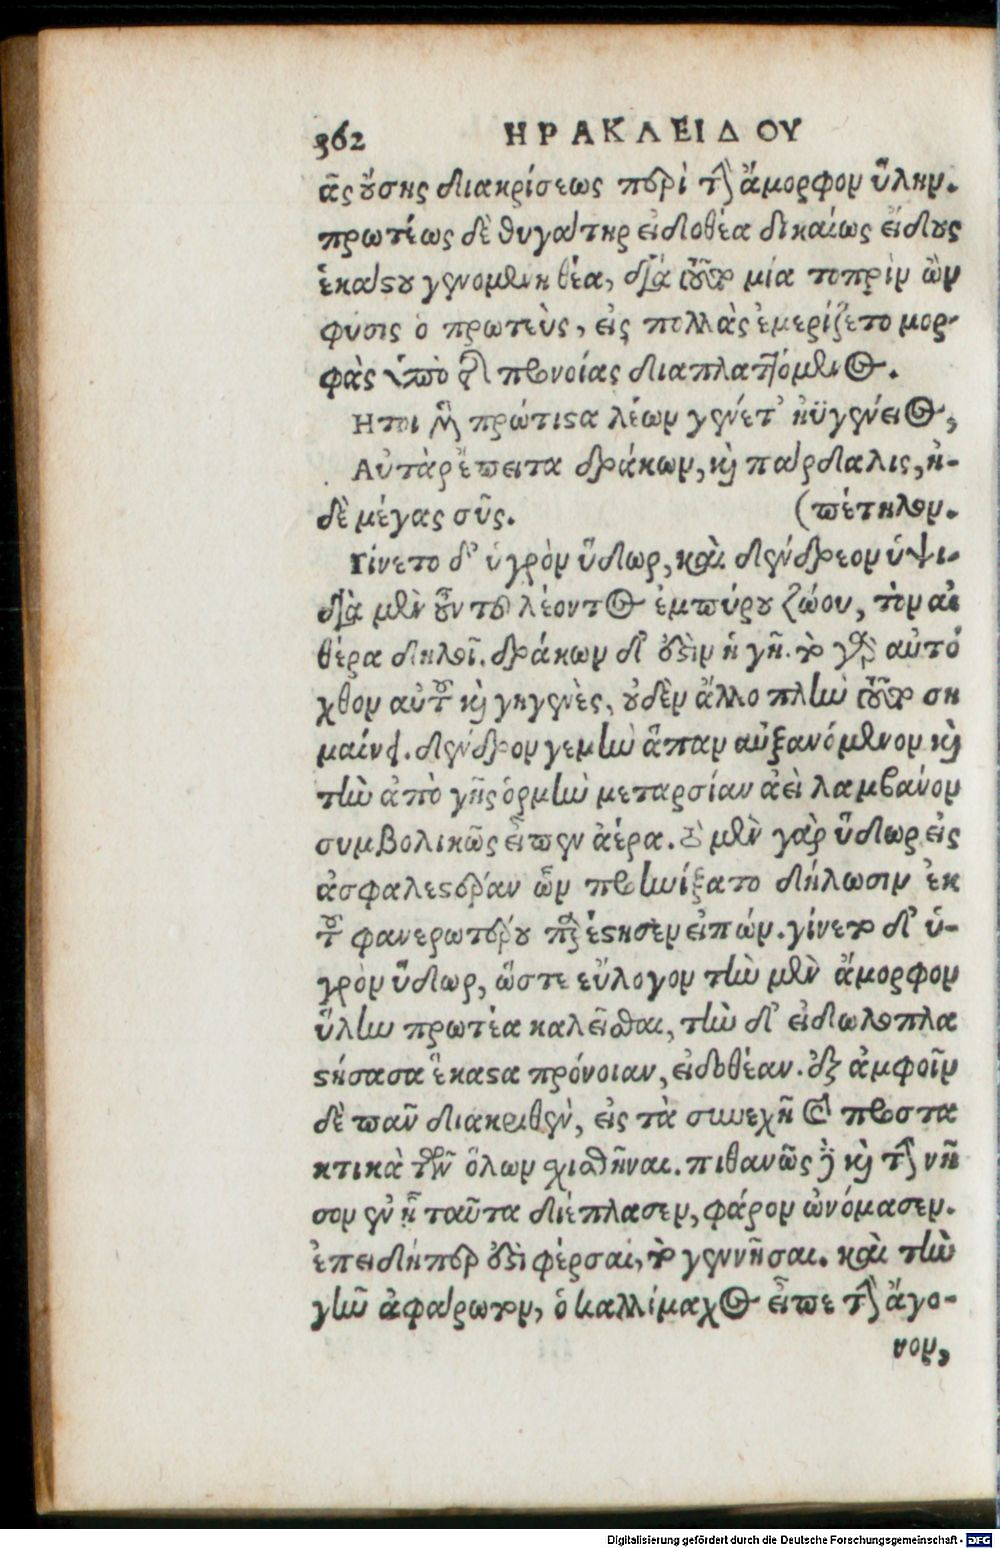 362 ΗΡΑΚΛΕΙΔΟΥ
ᾶς ούσης διακρίσεως περὶ τὴν ἄμορφον ὕλην.
πρωτέως δὲ θυγάτηρ εἰδοθέα δικαίως εἴδους
ἑκάστου γενομένη θέα, διὰ τοῦτο μία τοπρὶν ὢν
φύσις ὁ πρωτεὺς, εἰς πολλὰς ἐμερίζετο μορ-
φὰς ὑπὸ τῆς προνοίας διαπλαττόμενος.
Ητοι μὴν πρώτιστα λέων γένετ' ἠϋγένειος,
Αὐτὰρ ἔπειτα δράκων, καὶ πάρδαλις, ἠ-
δὲ μέγας σῦς. (πέτηλον.
Γίνετο δ' ὑγρὸν ὕδωρ, καὶ δένδρεον ὑψι-
διὰ μὲν οὖν τοῦ λέοντος ἐμπύρου ζώου, τὸν αἰ
θέρα δηλοῖ. δράκων δ' ἐστὶν ἡ γῆ. τὸ γὰρ αὐτό
χθον αὐτοῦ καὶ γηγενὲς, οὐδὲν ἄλλο πλὴν τοῦτο ση
μαίνει. δένδρον γεμὴν ἅπαν αὐξανόμενον καὶ
τὴν ἀπὸ γῆς ὁρμὴν μεταρσίαν ἀεὶ λαμβάνον
συμβολικῶς εἶπεν ἀέρα. τὸ μὲν γὰρ ὕδωρ εἰς
ἀσφαλεστέραν ὧν προηνίξατο δήλωσιν ἐκ
τοῦ φανερωτέρου παρέστησεν εἰπών. γίνετο δ' ὑ-
γρὸν ὕδωρ, ὥστε εὔλογον τὴν μὲν ἄμορφον
ὕλην πρωτέα καλεῖσθαι, τὴν δ' εἰδωλοπλα
στήσασα ἕκαστα πρόνοιαν, εἰδοθέαν. ἐξ ἀμφοῖν
δὲ πᾶν διακριθὲν, εἰς τὰ συνεχῆ καὶ προστα
κτικὰ τῶν ὅλων χισθῆναι. πιθανῶς δὲ καὶ τὴν νῆ
σον ἐν ᾗ ταῦτα διέπλασεν, φάρον ὠνόμασεν.
ἐπειδήπερ ἐστὶ φέρσαι, τὸ γεννῆσαι. καὶ τὴν
γῆν ἀφάρωτον, ὁ καλλίμαχος εἶπε τὴν ἄγο-
νον,
Digitalisierung gefördert durch die Deutsche Forschungsgemeinschaft - DFG